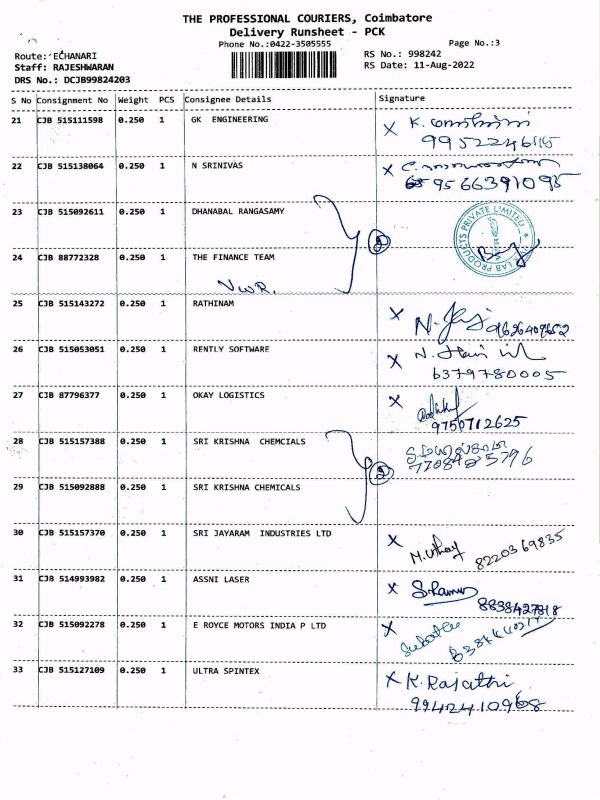 THE PROFESSIONAL COURIERS, Coimbatore
Delivery Runsheet - PCK
Phone No.:0422-3505555
Page No.:3
Route: ECHANARI
RS No.: 998242
Staff: RAJESHWARAN
RS Date: 11-Aug-2022
DRS No.: DCJB99824203
S No Consignment No Weight PCS Consignee Details Signature
21 CJB 515111598 0.250 1 GK ENGINEERING
22 CJB 515138064 0.250 1 N SRINIVAS
9566391095
23 CJB 515092611 0.250 1 DHANABAL RANGASAMY
2
LAB PRODUCTS PRIVATE LIMITED
24 CJB 88772328 0.250 1 THE FINANCE TEAM
25 CJB 515143272 0.250 1 RATHINAM
9626409652
26 CJB 515053051 0.250 1 RENTLY SOFTWARE
6379780005
27 CJB 87796377 0.250 1 OKAY LOGISTICS
9750712625
28 CJB 515157388 0.250 1 SRI KRISHNA CHEMCIALS
7708485796
2
29 CJB 515092888 0.250 1 SRI KRISHNA CHEMICALS
30 CJB 515157370 0.250 1 SRI JAYARAM INDUSTRIES LTD
M. Uthay 8220369835
31 CJB 514993982 0.250 1 ASSNI LASER
8838427818
32 CJB 515092278 0.250 1 E ROYCE MOTORS INDIA P LTD
33 CJB 515127109 0.250 1 ULTRA SPINTEX
K. Rajathi
9942410968